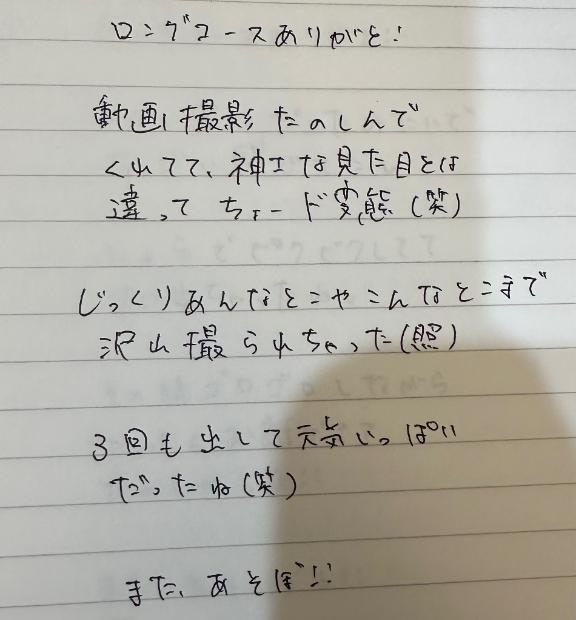 ロングコースありがと!
動画撮影たのしんで
くれてて、神士な見た目とは
違ってちょード変態(笑)
じっくりあんなとこやこんなとこまで
沢山撮られちゃった(照)
3回も出して元気いっぱい
だったね(笑)
また、あそぼ!!